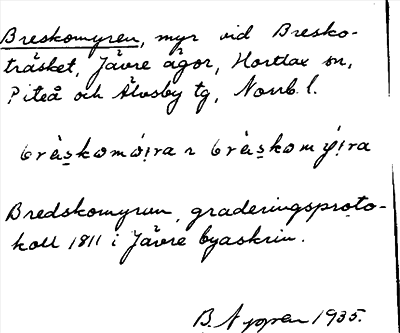 Breskomyren, myr vid Bresko-
träsket, Jävre ägor, Hortlax sn,
Piteå och Älvsby tg, Norrb. l.
Bredskomyrun, graderingsproto-
koll 1811 i Jävre byaskrin.
B. 1935.